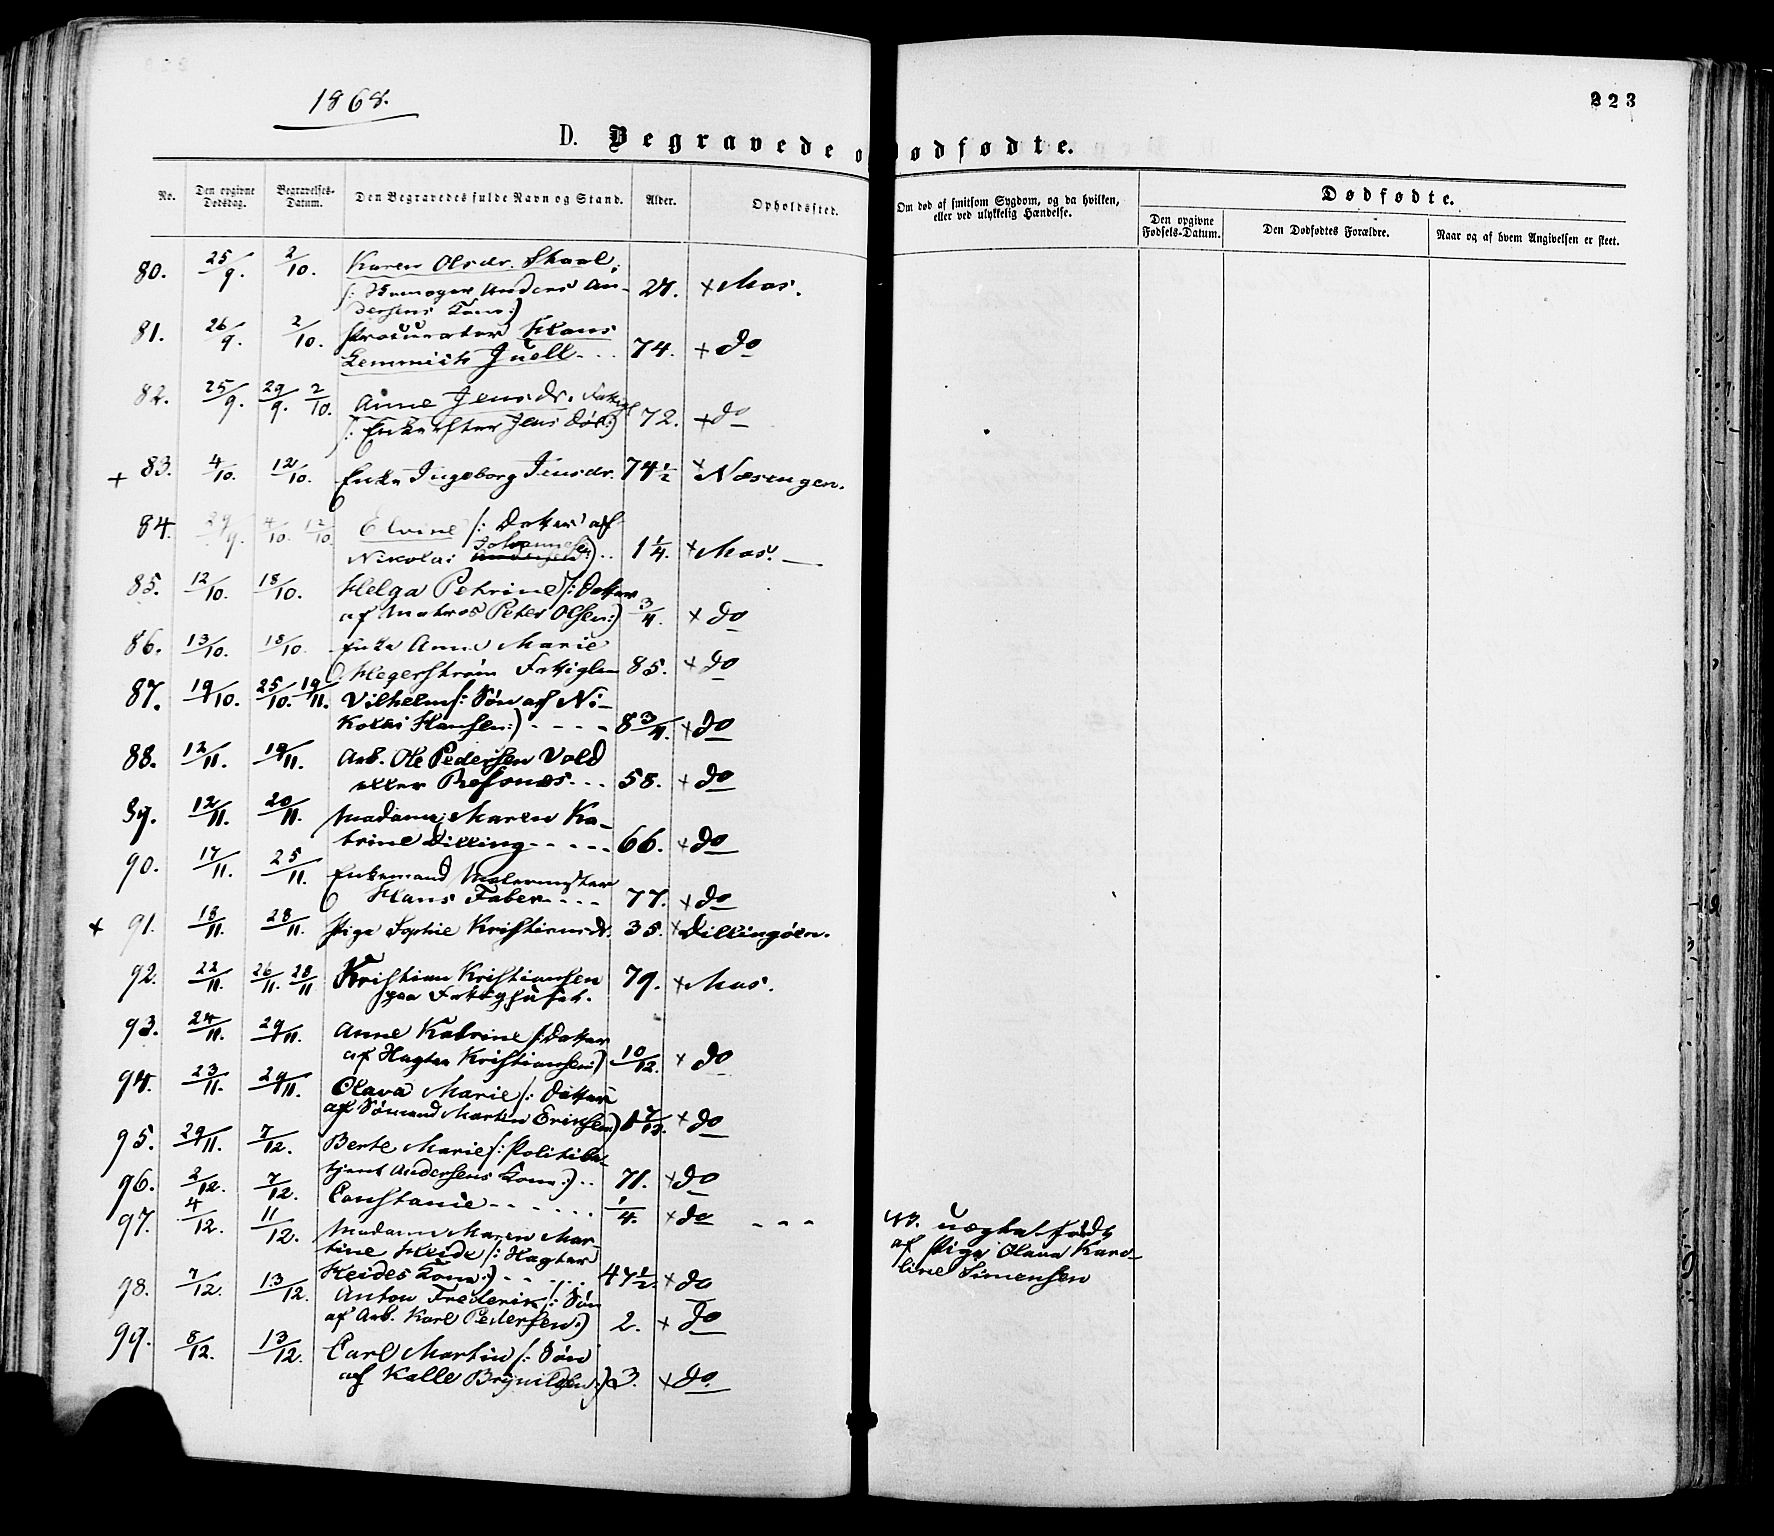 1868.
223
D. Begravede o
ødfødte.
No.
Den opgivne Dødsdag.
Begravelses-Datum.
Den Begravedes fulde Navn og Stand.
Alder.
Opholdssted.
Om død af smitsom Sygdom, og da hvilken, eller ved ulykkelig Hændelse.
Dødfødte.
Den opgivne Fødsels-Datum.
Den Dødfødtes Forældre.
Naar og af hvem Angivelsen er skeet.
80. 25/9. 2/10. Karen Olsdr. Skaal.
(: Anders An- 27. + Mos.
dersens Kone:)
81. 26/9. 2/10. Procurator Hans
Lemmich Juell - - - 74. + do
82. 25/9. 29/9. 2/10. Anne Jensdr. Fattigl
(: Enke efter Jens :) 72. + do
+ 83. 4/10. 12/10. Enke Ingeborg Jensdr. 74 1/2 + Næsengen.
84. 29/9. 4/10. 12/10. Elvine (: Datter af
Nikolai Johannes :) . . 1 1/4. + Mos. —
85. 12/10. 18/10. Helga Petrine (: Datter
af Matros Peter Olsen:) 3/4. + do
86. 13/10. 18/10. Enke Anne Marie
Hegerstrøm Fattiglem 85. + do
87. 19/10. 25/10. 19/11. Vilhelm (: Søn af Ni-
kolai Hansen:) - - - - 8 3/4. + do
88. 12/11. 19/11. Arb. Ole Pedersen Vold
eller Refsnæs. - - 58. + do
89. 12/11. 20/11. Madame Maren Ka-
trine Dilling - - - - - 66. + do
90. 17/11. 25/11. Enkemand Malermester
Hans Faber - - - - 77. + do
+ 91. 18/11. 28/11. Pige Sophie Kristiansdr. 35. + Dillingøen.
92. 22/11. 26/11. 28/11 Kristian Kristiansen 79. + Mos.
paa Fattighuset.
93. 24/11. 29/11. Anne Katrine (: Datter
af Hagter Kristiansen:) 10/12. + do
94. 23/11. 29/11. Olava Marie (: Datter
af Sømand Martin Eriksen) 1 7/12. + do
95. 29/11. 7/12. Berte Marie (: Politibe-
tjent Andersens Kone:) . . 71. + do
96. 2/12. 7/12. Constanse - - - - - - 1/4. + do - - - 43. uægte født
97. 4/12. 11/12. Madame Maren Mar- af Pige Olava Karo-
tine Heide (: Hagter line Simensen
Heides Kone:) - - - - - 47 1/2. + do
98. 7/12. 13/12. Anton Frederik (: Søn
af Arb. Karl Pedersen:) 2. + do
99. 8/12. 13/12. Carl Martin (: Søn
af Kalle Brynildsen:) 3. + do.